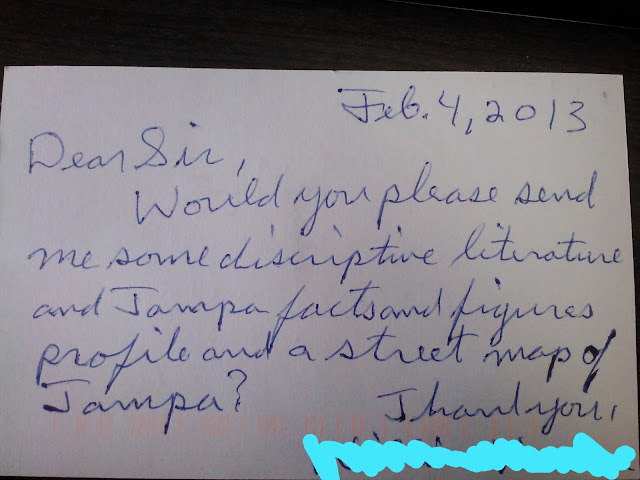 Feb. 4, 2013
Dear Sir,
Would you please send
me some discriptive literature
and Tampa facts and figures
profile and a street map of
Tampa?
Thank you,